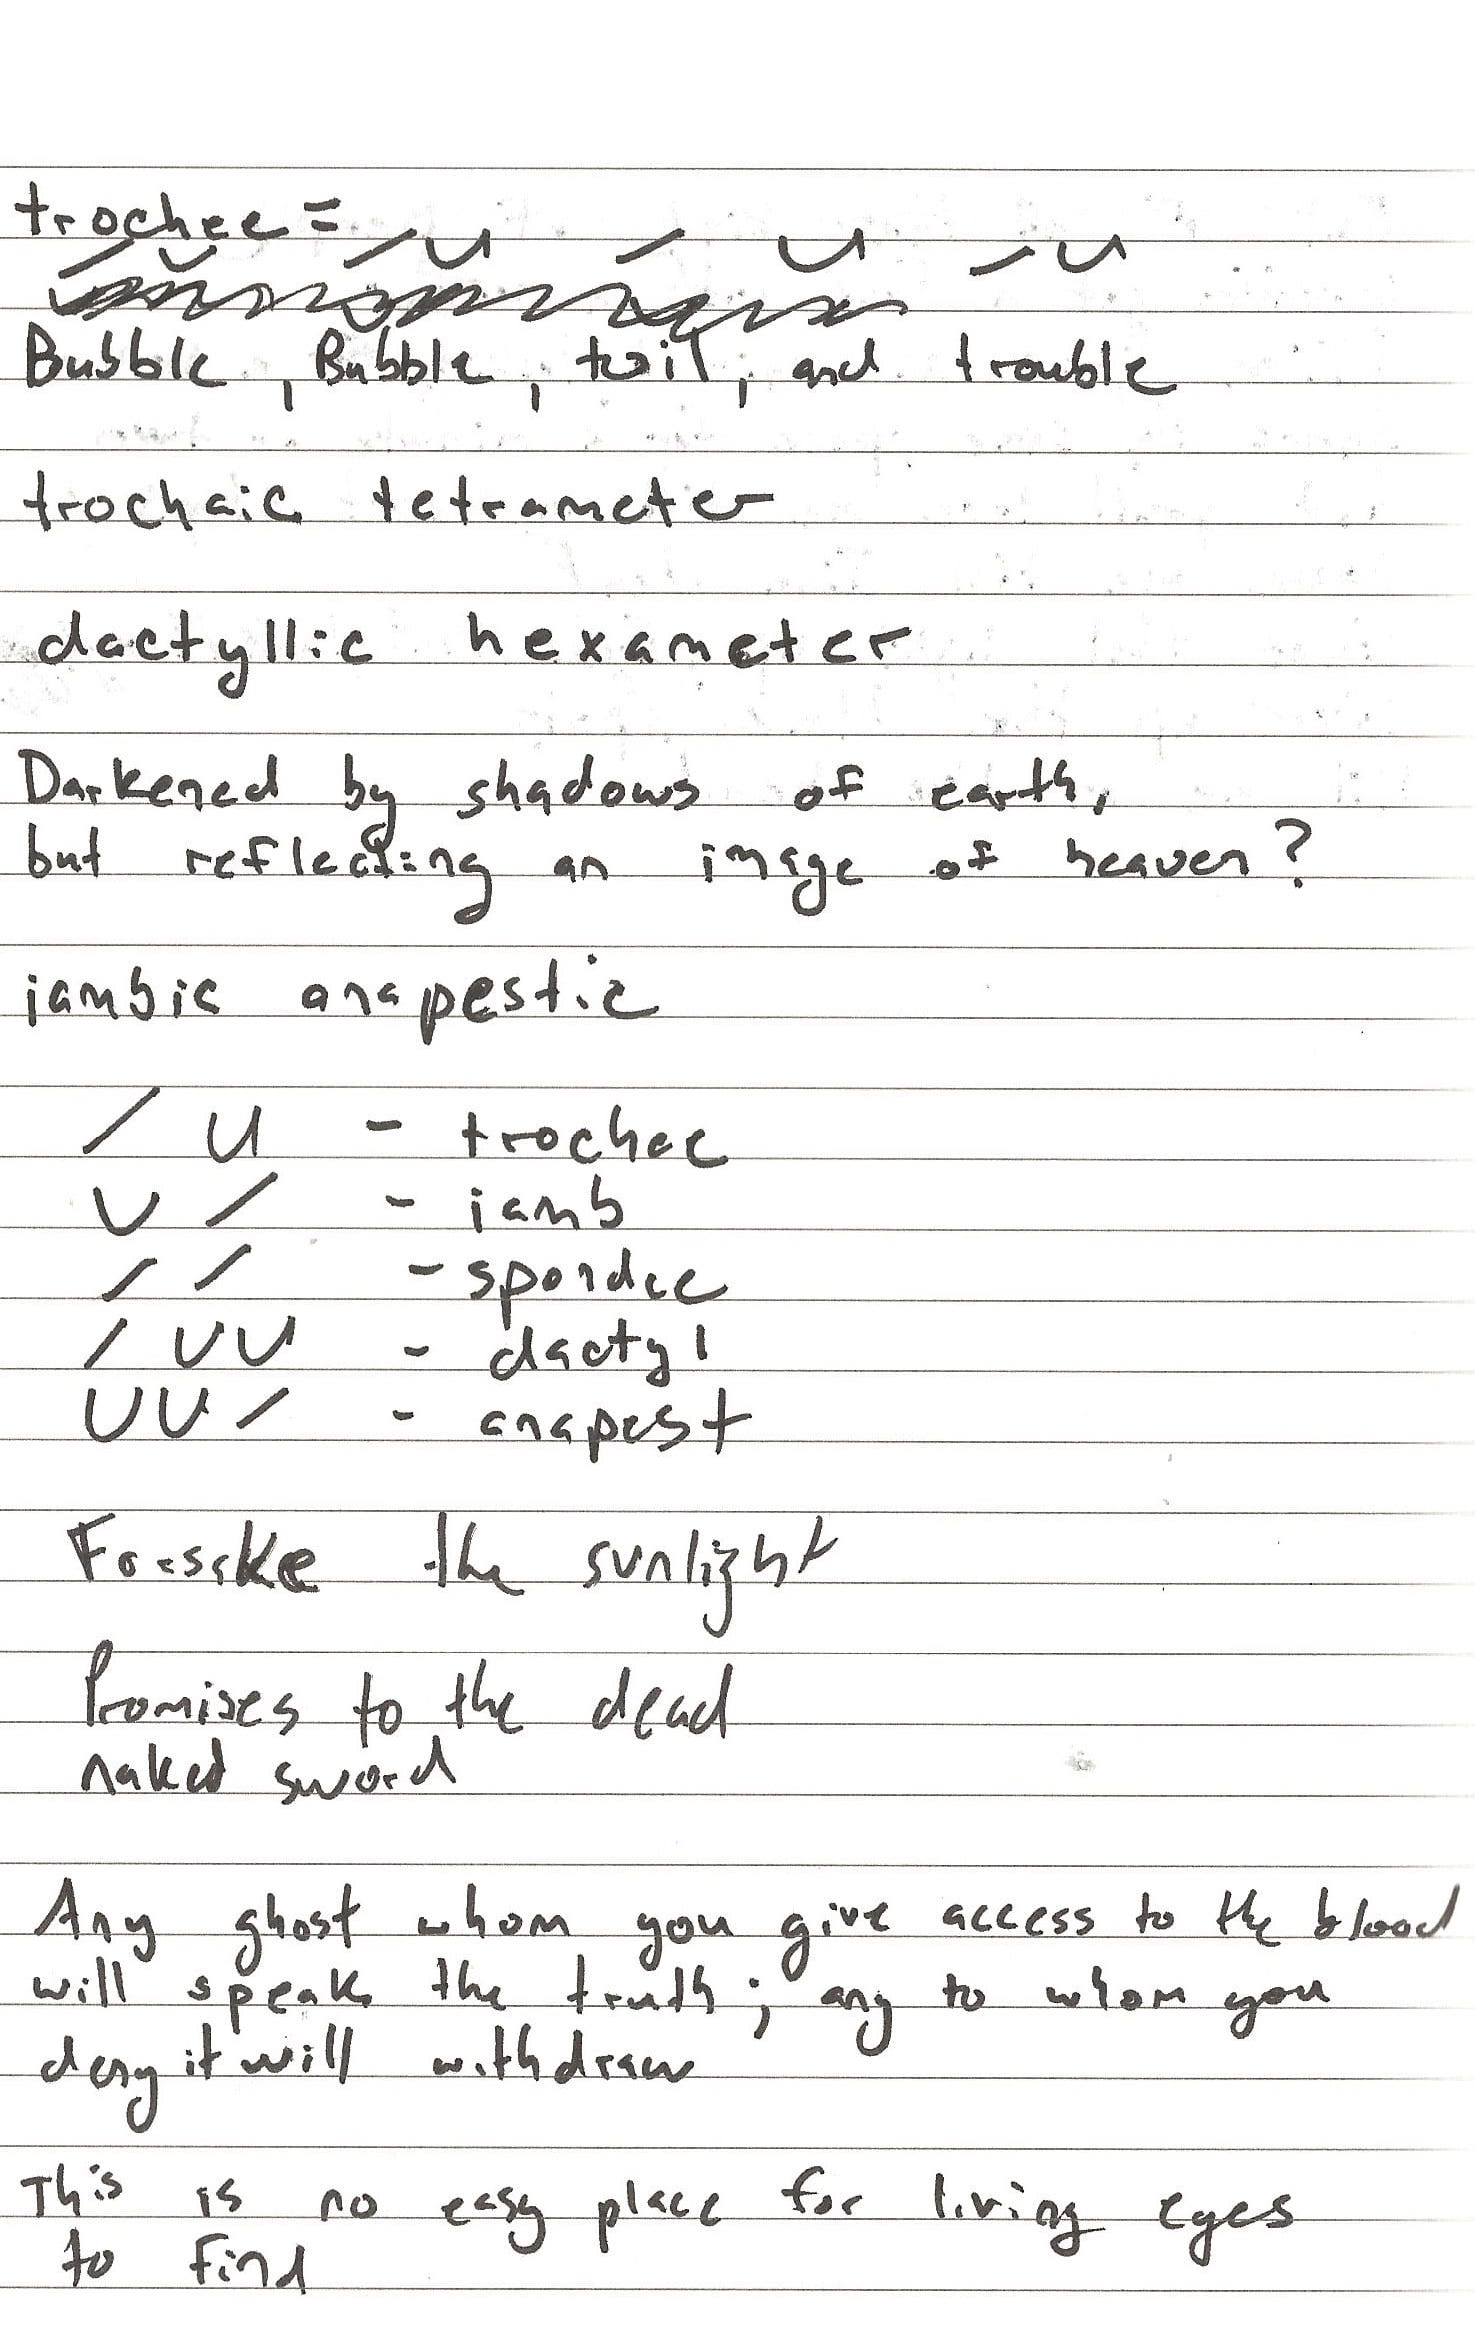 trochee =
/ U / U / U / U
Bubble, Bubble, toil, and trouble
trochaic tetrameter
dactyllic hexameter
Darkened by shadows of earth,
but reflecting an image of heaven?
iambic anapestic
/ U - trochee
U / - iamb
/ / - spondee
/ U U - dactyl
U U / - anapest
Forsake the sunlight
Promises to the dead
naked sword
Any ghost whom you give access to the blood
will speak the truth; any to whom you
deny it will withdraw
This is no easy place for living eyes
to find